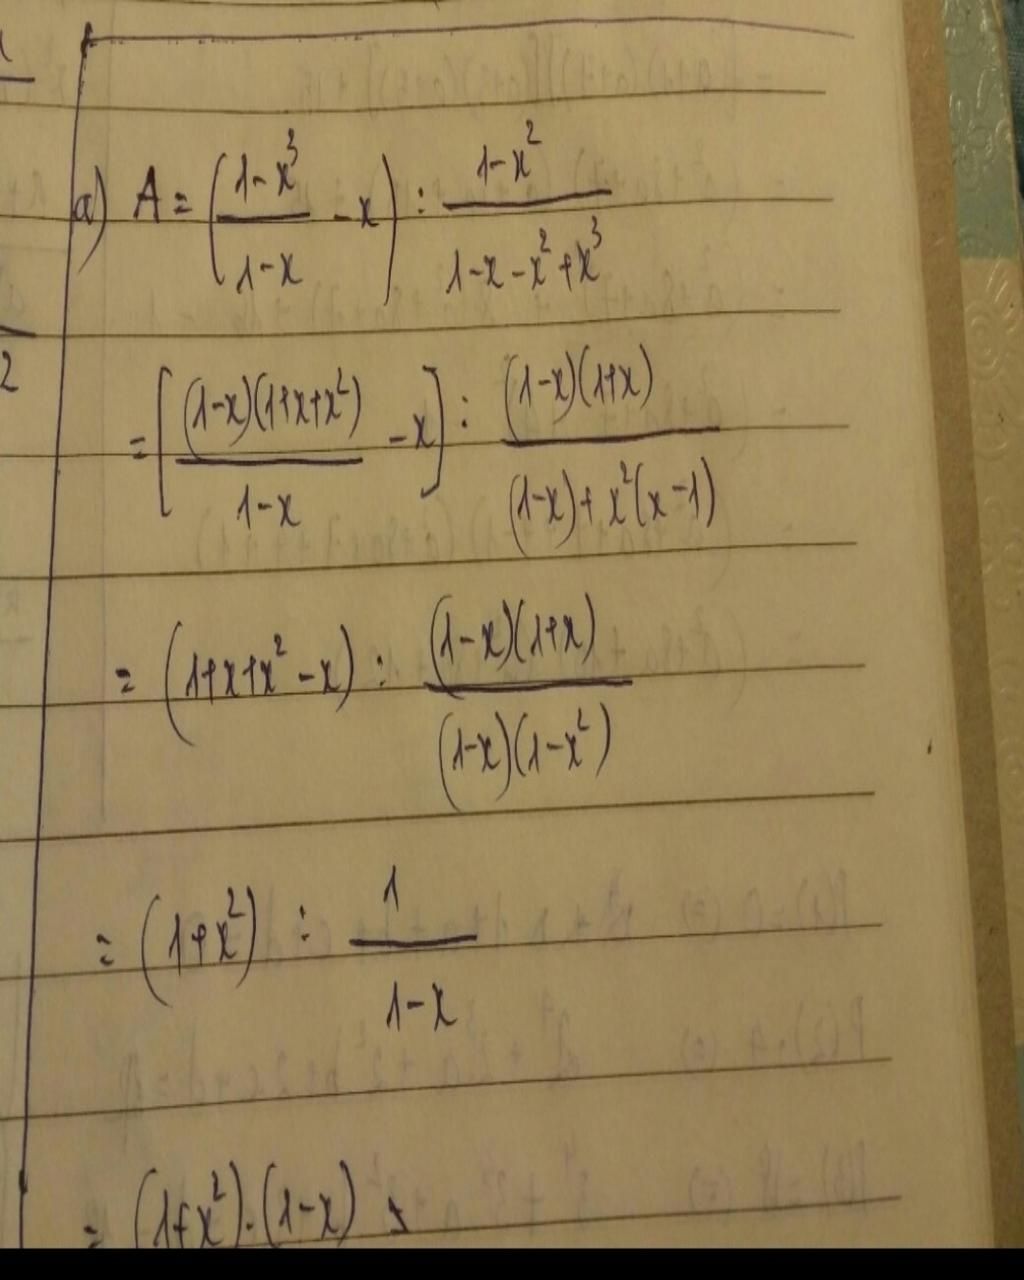 a) A = ((1-x³)/(1-x) - x) : (1-x²)/(1-x-x²+x³)
= [((1-x)(1+x+x²))/(1-x) - x] : ((1-x)(1+x))/((1-x)+x²(x-1))
= (1+x+x²-x) : ((1-x)(1+x))/((1-x)(1-x²))
= (1+x²) : 1/(1-x)
= (1+x²).(1-x)
2